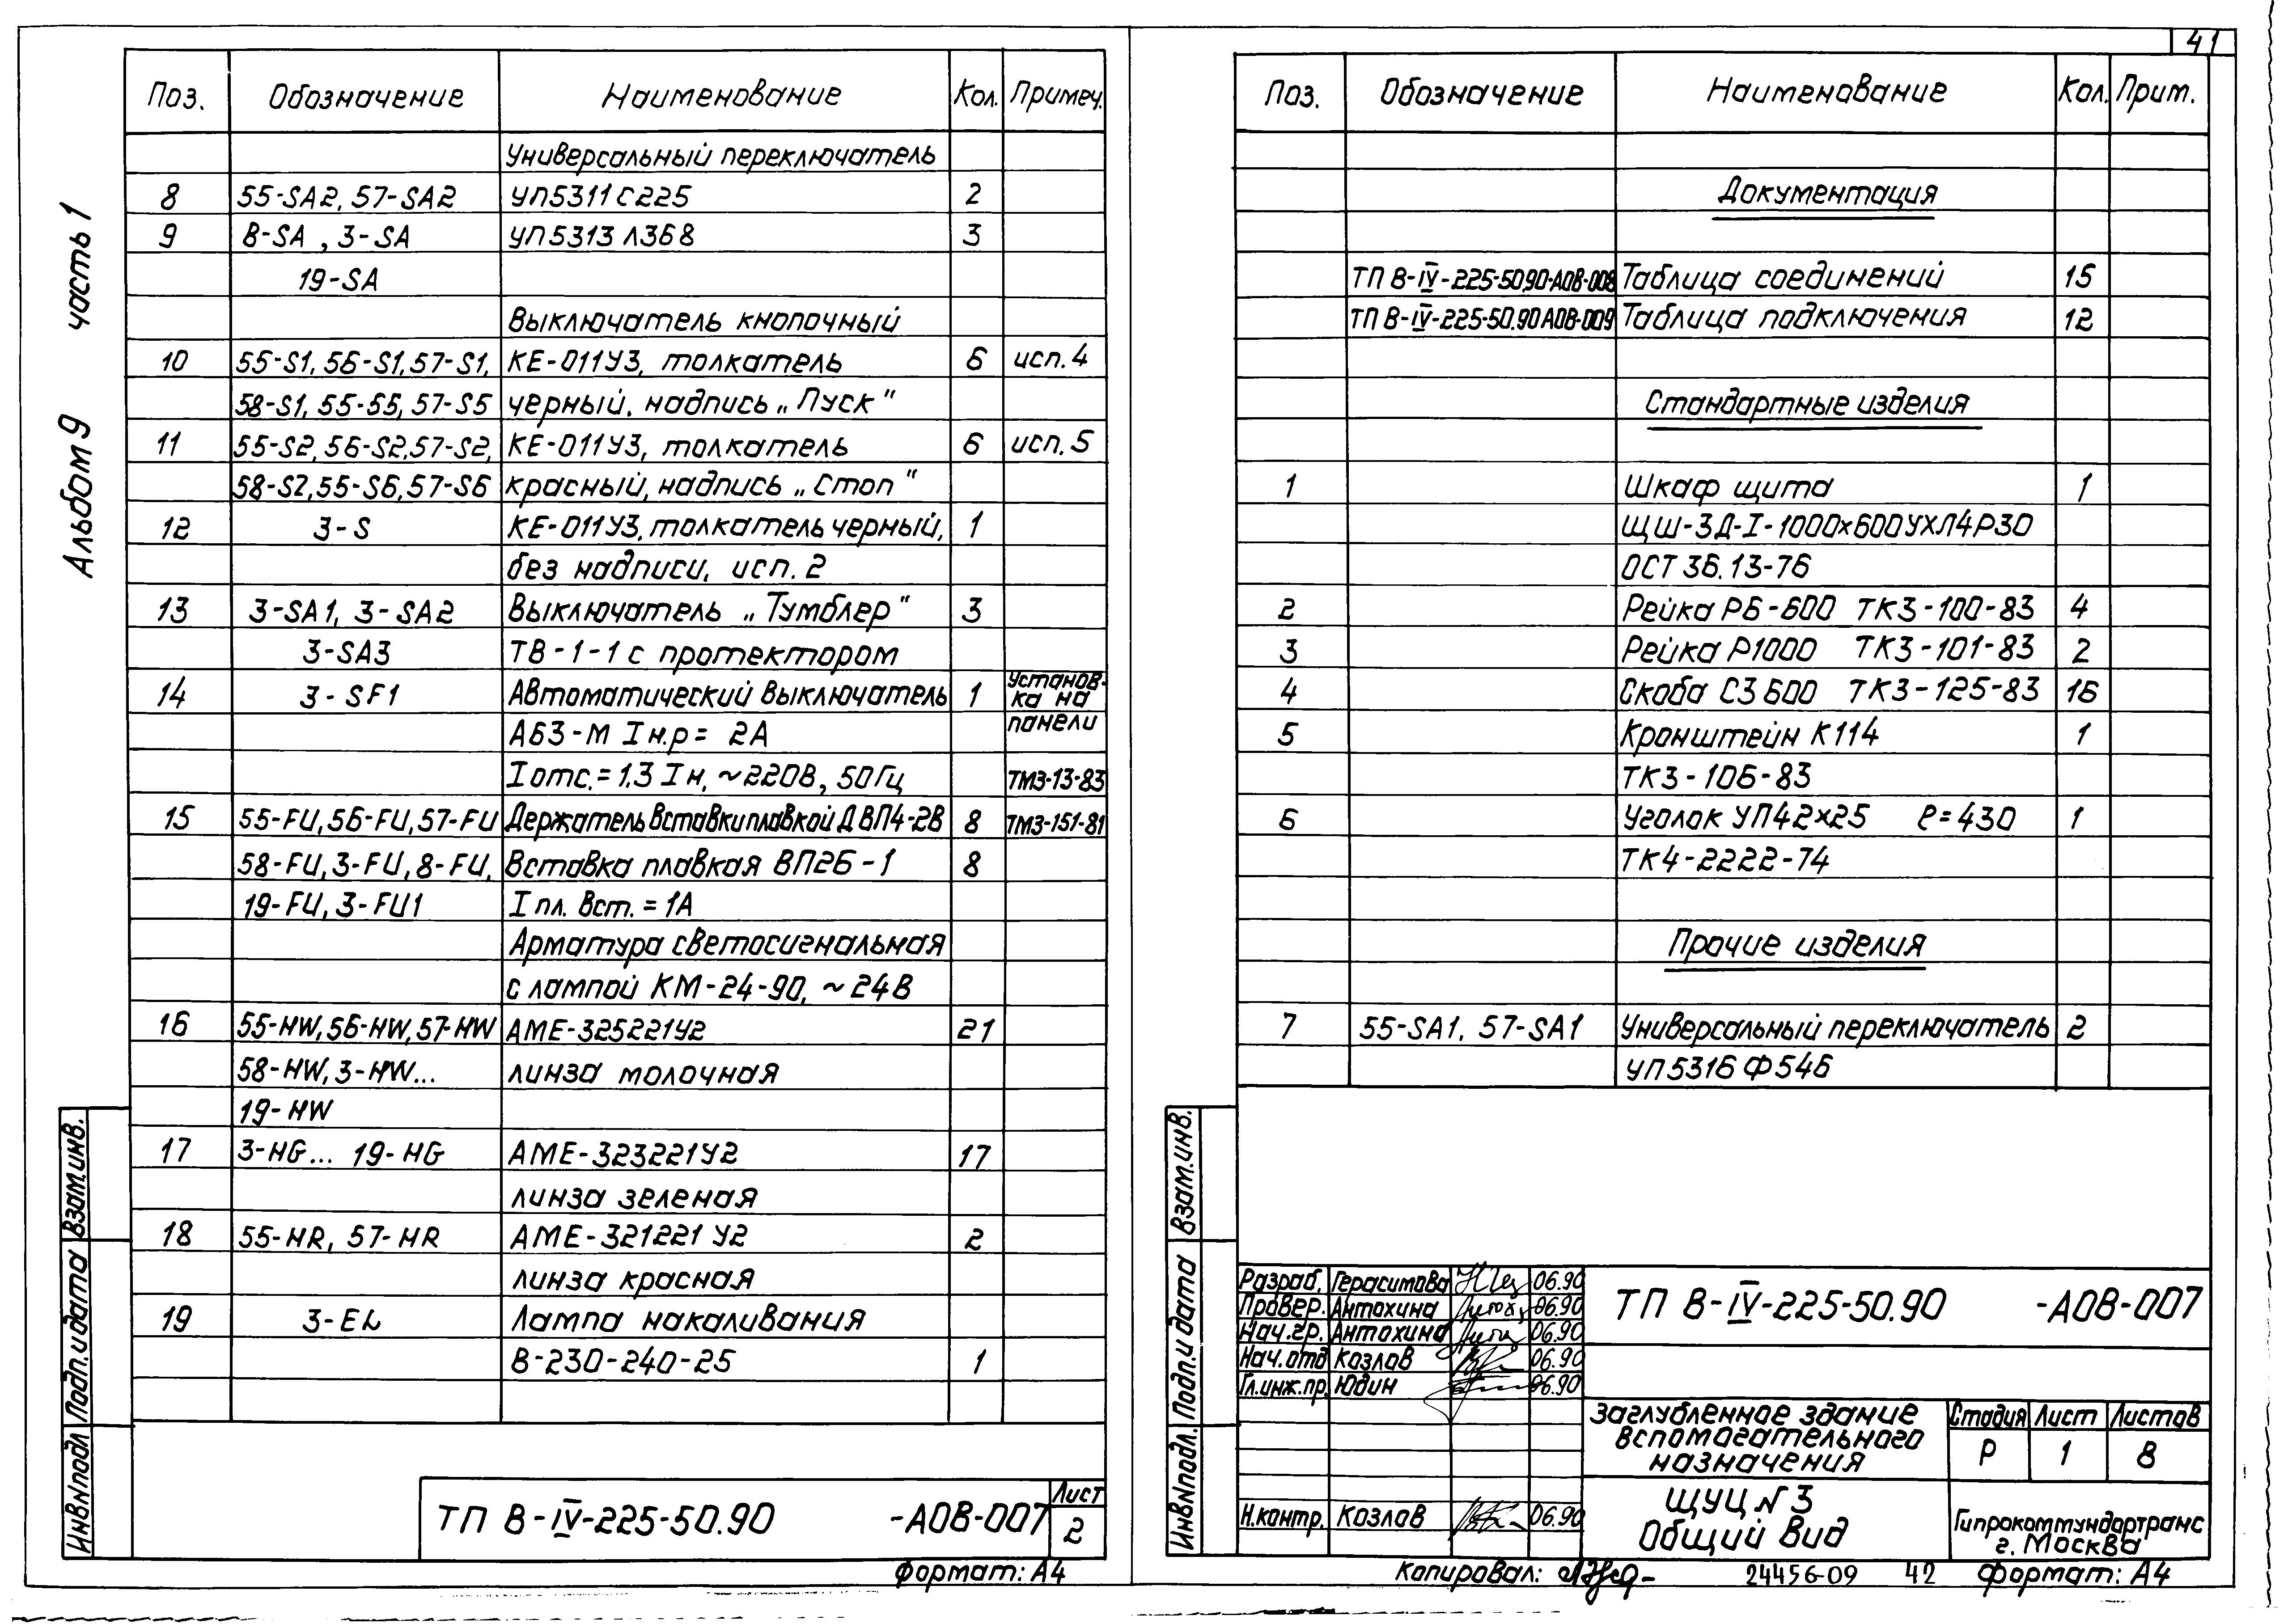 41
Альбом 9 часть 1
Поз. Обозначение Наименование Кол. Примеч.
Универсальный переключатель
8 55-SA2, 57-SA2 УП5311С225 2
9 8-SA, 3-SA УП5313Л368 3
19-SA
Выключатель кнопочный
10 55-S1, 56-S1, 57-S1, КЕ-011У3, толкатель 6 исп. 4
58-S1, 55-S5, 57-S5 черный, надпись „Пуск"
11 55-S2, 56-S2, 57-S2, КЕ-011У3, толкатель 6 исп. 5
58-S2, 55-S6, 57-S6 красный, надпись „Стоп"
12 3-S КЕ-011У3, толкатель черный, 1
без надписи, исп. 2
13 3-SA1, 3-SA2 Выключатель „Тумблер" 3
3-SA3 ТВ-1-1 с протектором
14 3-SF1 Автоматический выключатель 1 Установ-
ка на
панели
А63-М Iн.р = 2А
Iотс. = 1.3 Iн, ~220В, 50Гц ТМ3-13-83
15 55-FU, 56-FU, 57-FU Держатель вставки плавкой ДВП4-2В 8 ТМ3-151-81
58-FU, 3-FU, 8-FU, Вставка плавкая ВП2Б-1 8
19-FU, 3-FU1 I пл. вст. = 1А
Арматура светосигнальная
с лампой КМ-24-90, ~24В
16 55-HW, 56-HW, 57-HW АМЕ-325221У2 21
58-HW, 3-HW... линза молочная
19-HW
17 3-HG... 19-HG АМЕ-323221У2 17
линза зеленая
18 55-HR, 57-HR АМЕ-321221У2 2
линза красная
19 3-EL Лампа накаливания
В-230-240-25 1
Взам.инв.
Подп.и дата
Инв№подл
ТП В-IV-225-50.90 -АОВ-007 Лист
2
Формат: А4
Поз. Обозначение Наименование Кол. Прим.
Документация
ТП В-IV-225-50.90-АОВ-008 Таблица соединений 15
ТП В-IV-225-50.90 АОВ-009 Таблица подключения 12
Стандартные изделия
1 Шкаф щита 1
ЩШ-3Д-I-1000х600УХЛ4Р30
ОСТ 36.13-76
2 Рейка РБ-600 ТК3-100-83 4
3 Рейка Р1000 ТК3-101-83 2
4 Скоба С3 600 ТК3-125-83 16
5 Кронштейн К114 1
ТК3-106-83
6 Уголок УП42х25 ℓ=430 1
ТК4-2222-74
Прочие изделия
7 55-SA1, 57-SA1 Универсальный переключатель 2
УП5316Ф546
Взам.инв.
Подп.и дата
Инв№подл.
Разраб. Герасимова 06.90
Провер. Антохина 06.90
Нач.гр. Антохина 06.90
Нач.отд Козлов 06.90
Гл.инж.пр. Юдин 06.90
Н.контр. Козлов 06.90
ТП В-IV-225-50.90 -АОВ-007
Заглубленное здание
вспомогательного
назначения
Стадия Лист Листов
Р 1 8
ЩУЦ N 3
Общий вид
Гипрокоммундортранс
г. Москва
Копировал: 24456-09 42 Формат: А4